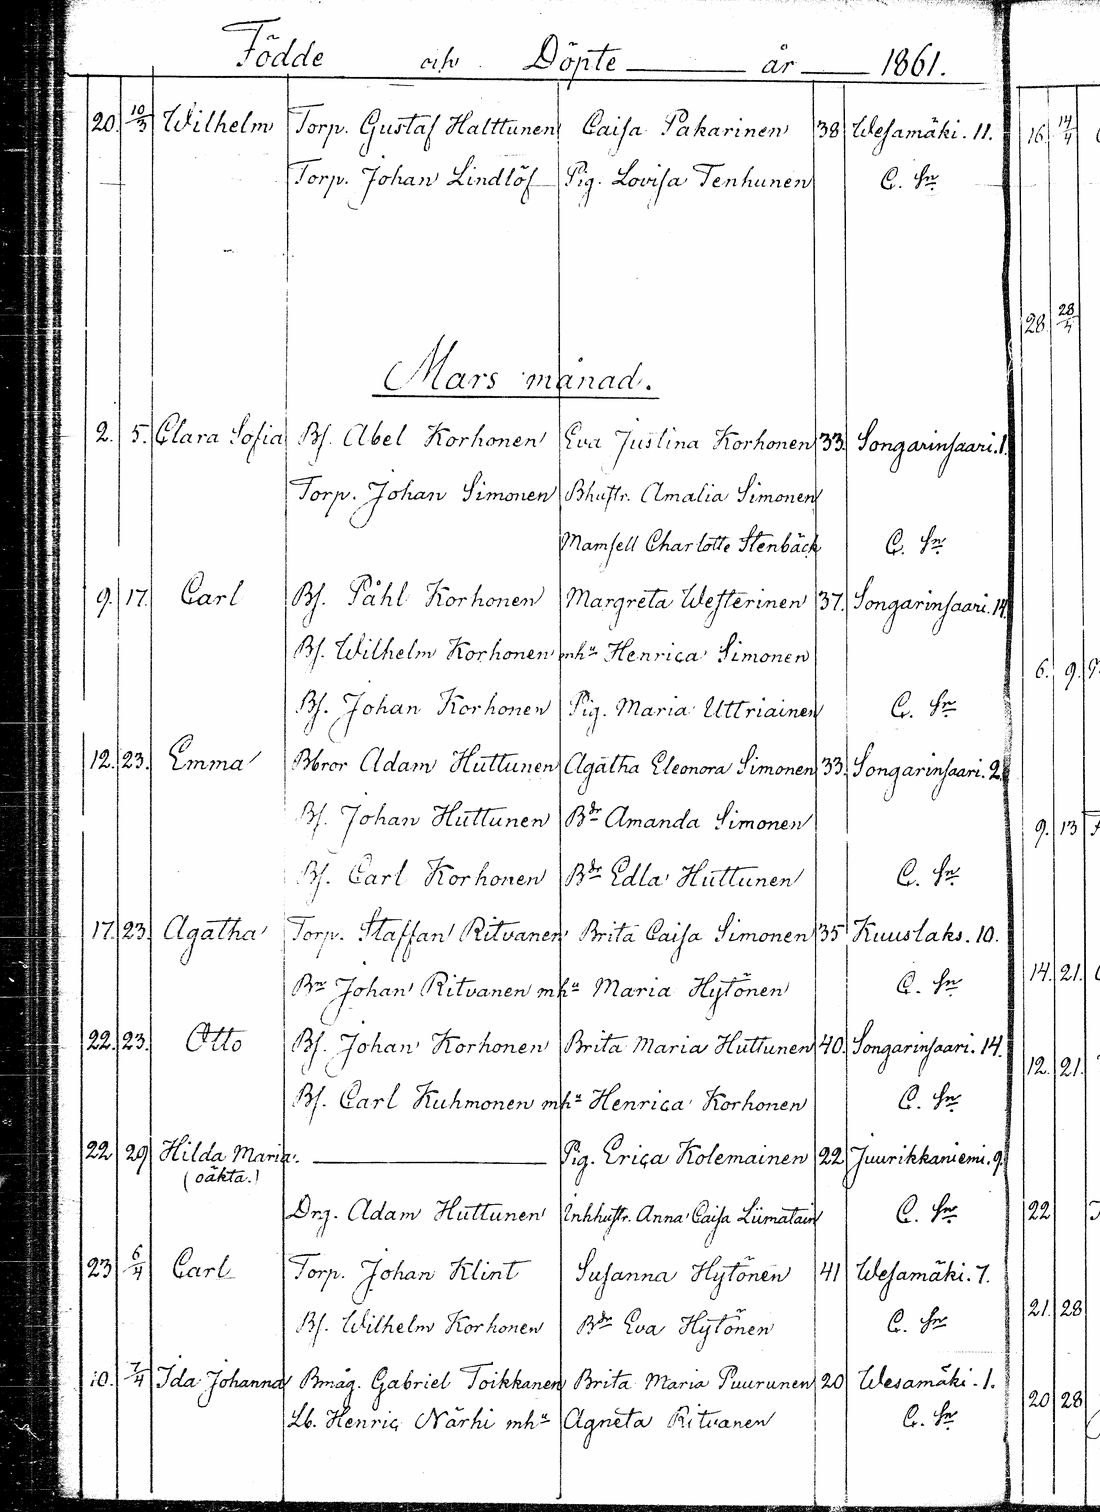 Födde och Döpte år 1861.
20. 10/3 Wilhelm Torp. Gustaf Halttunen Caisa Pakarinen 38 Wesamäki. 11.
Torp. Johan Lindlöf Pig. Lovisa Tenhunen C. Sn
Mars månad.
2. 5. Clara Sofia Bs. Abel Korhonen Eva Justina Korhonen 33. Songarinsaari. 1.
Torp. Johan Simonen Bhustr. Amalia Simonen
Mamsell Charlotte Stenbäck C. Sn
9. 17. Carl Bs. Påhl Korhonen Margreta Westerinen 37. Songarinsaari. 14.
Bs. Wilhelm Korhonen mhu Henrica Simonen
Bs. Johan Korhonen Pig. Maria Uttriainen C. Sn
12. 23. Emma Bbror Adam Huttunen Agatha Eleonora Simonen 33. Songarinsaari. 2.
Bs. Johan Huttunen Bdr Amanda Simonen
Bs. Carl Korhonen Bdr Edla Huttunen C. Sn
17. 23. Agatha Torp. Staffan Ritvanen Brita Caisa Simonen 35 Kuuslaks. 10.
Bn Johan Ritvanen mhu Maria Hytönen C. Sn
22. 23. Otto Bs. Johan Korhonen Brita Maria Huttunen 40. Songarinsaari. 14.
Bs. Carl Kuhmonen mhu Henrica Korhonen C. Sn
22 29 Hilda Maria. Pig. Erica Kolemainen 22 Juurikkaniemi. 9.
(oäkta.)
Drg. Adam Huttunen Inhhustr. Anna Caisa Liimatain C. Sn
23 6/4 Carl Torp. Johan Klint Susanna Hytönen 41 Wesamäki. 7.
Bs. Wilhelm Korhonen Bdr Eva Hytönen C. Sn
10. 7/4 Ida Johanna Bmåg. Gabriel Toikkanen Brita Maria Puurunen 20 Wesamäki. 1.
Lb. Henric Närhi mhu Agneta Ritvanen C. Sn
16. 14/4
28 28/4
6. 9.
9. 13
14. 21.
12. 21.
22
21. 28
20 28